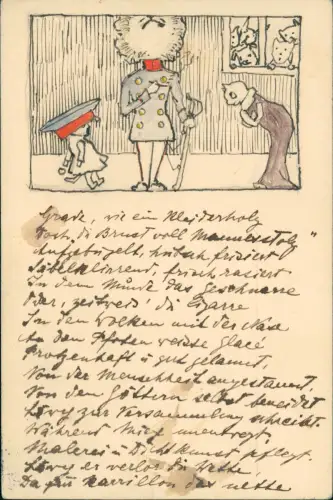 Grade, wie ein Kleiderholz
Doch die Brust voll Mannesstolz"
Aufgebügelt, hübsch frisiert
Säbelklirrend, frisch rasiert
In dem Munde das Geschnarre
Oder, die Zigarre
In den Wolken mit der Nase
An den Pfoten weisse Glacé
Protzenhaft u. gut gelaunt,
Von der Menschheit angestaunt,
Von den Göttern selbst beneidet
Löwy zur Versammlung schreitet.
Während Miez unentwegt
Malerei u. Dichtkunst pflegt.
Löwy er verlor die Wette
Da Karrillon das nette